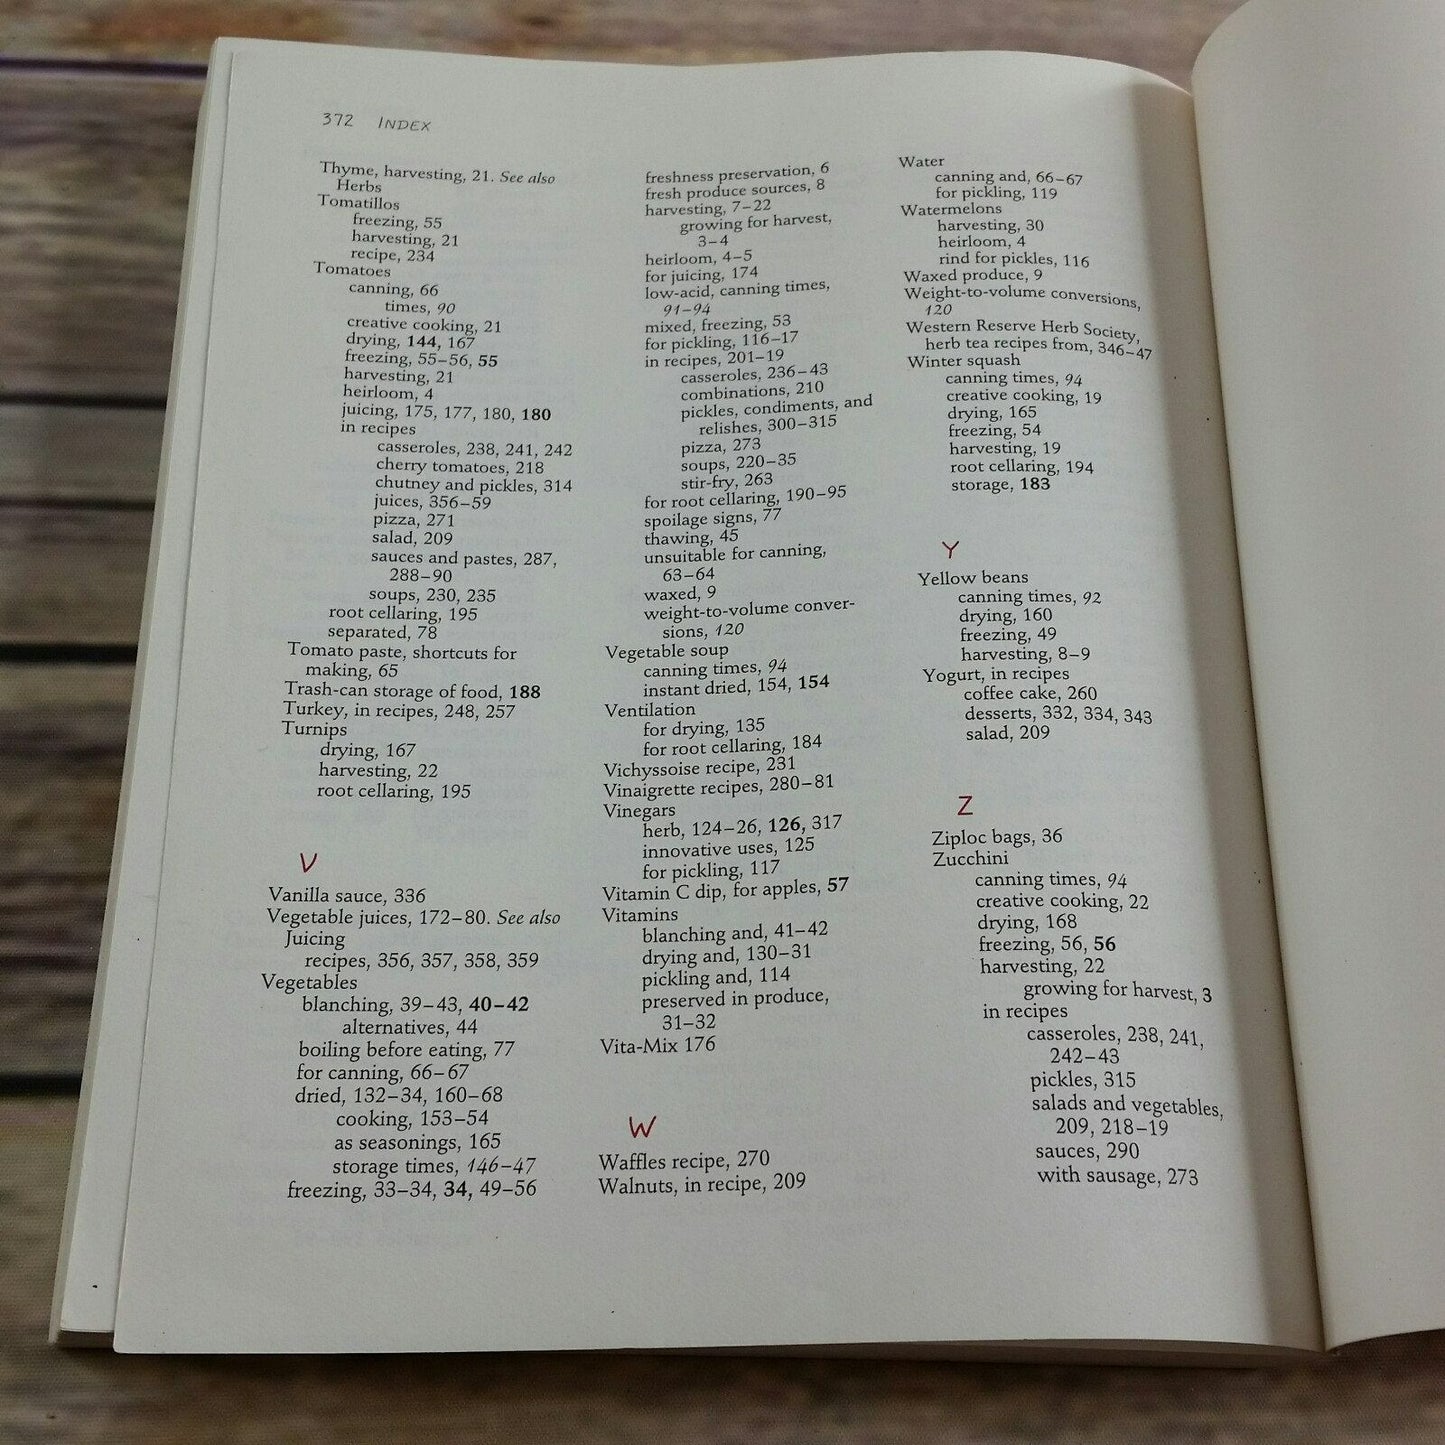 372 INDEX
Thyme, harvesting, 21. See also
Herbs
Tomatillos
freezing, 55
harvesting, 21
recipe, 234
Tomatoes
canning, 66
times, 90
creative cooking, 21
drying, 144, 167
freezing, 55–56, 55
harvesting, 21
heirloom, 4
juicing, 175, 177, 180, 180
in recipes
casseroles, 238, 241, 242
cherry tomatoes, 218
chutney and pickles, 314
juices, 356–59
pizza, 271
salad, 209
sauces and pastes, 287,
288–90
soups, 230, 235
root cellaring, 195
separated, 78
Tomato paste, shortcuts for
making, 65
Trash-can storage of food, 188
Turkey, in recipes, 248, 257
Turnips
drying, 167
harvesting, 22
root cellaring, 195
V
Vanilla sauce, 336
Vegetable juices, 172–80. See also
Juicing
recipes, 356, 357, 358, 359
Vegetables
blanching, 39–43, 40–42
alternatives, 44
boiling before eating, 77
for canning, 66–67
dried, 132–34, 160–68
cooking, 153–54
as seasonings, 165
storage times, 146–47
freezing, 33–34, 34, 49–56
freshness preservation, 6
fresh produce sources, 8
harvesting, 7–22
growing for harvest,
3–4
heirloom, 4–5
for juicing, 174
low-acid, canning times,
91–94
mixed, freezing, 53
for pickling, 116–17
in recipes, 201–19
casseroles, 236–43
combinations, 210
pickles, condiments, and
relishes, 300–315
pizza, 273
soups, 220–35
stir-fry, 263
for root cellaring, 190–95
spoilage signs, 77
thawing, 45
unsuitable for canning,
63–64
waxed, 9
weight-to-volume conver-
sions, 120
Vegetable soup
canning times, 94
instant dried, 154, 154
Ventilation
for drying, 135
for root cellaring, 184
Vichyssoise recipe, 231
Vinaigrette recipes, 280–81
Vinegars
herb, 124–26, 126, 317
innovative uses, 125
for pickling, 117
Vitamin C dip, for apples, 57
Vitamins
blanching and, 41–42
drying and, 130–31
pickling and, 114
preserved in produce,
31–32
Vita-Mix 176
W
Waffles recipe, 270
Walnuts, in recipe, 209
Water
canning and, 66–67
for pickling, 119
Watermelons
harvesting, 30
heirloom, 4
rind for pickles, 116
Waxed produce, 9
Weight-to-volume conversions,
120
Western Reserve Herb Society,
herb tea recipes from, 346–47
Winter squash
canning times, 94
creative cooking, 19
drying, 165
freezing, 54
harvesting, 19
root cellaring, 194
storage, 183
Y
Yellow beans
canning times, 92
drying, 160
freezing, 49
harvesting, 8–9
Yogurt, in recipes
coffee cake, 260
desserts, 332, 334, 343
salad, 209
Z
Ziploc bags, 36
Zucchini
canning times, 94
creative cooking, 22
drying, 168
freezing, 56, 56
harvesting, 22
growing for harvest, 3
in recipes
casseroles, 238, 241,
242–43
pickles, 315
salads and vegetables,
209, 218–19
sauces, 290
with sausage, 273